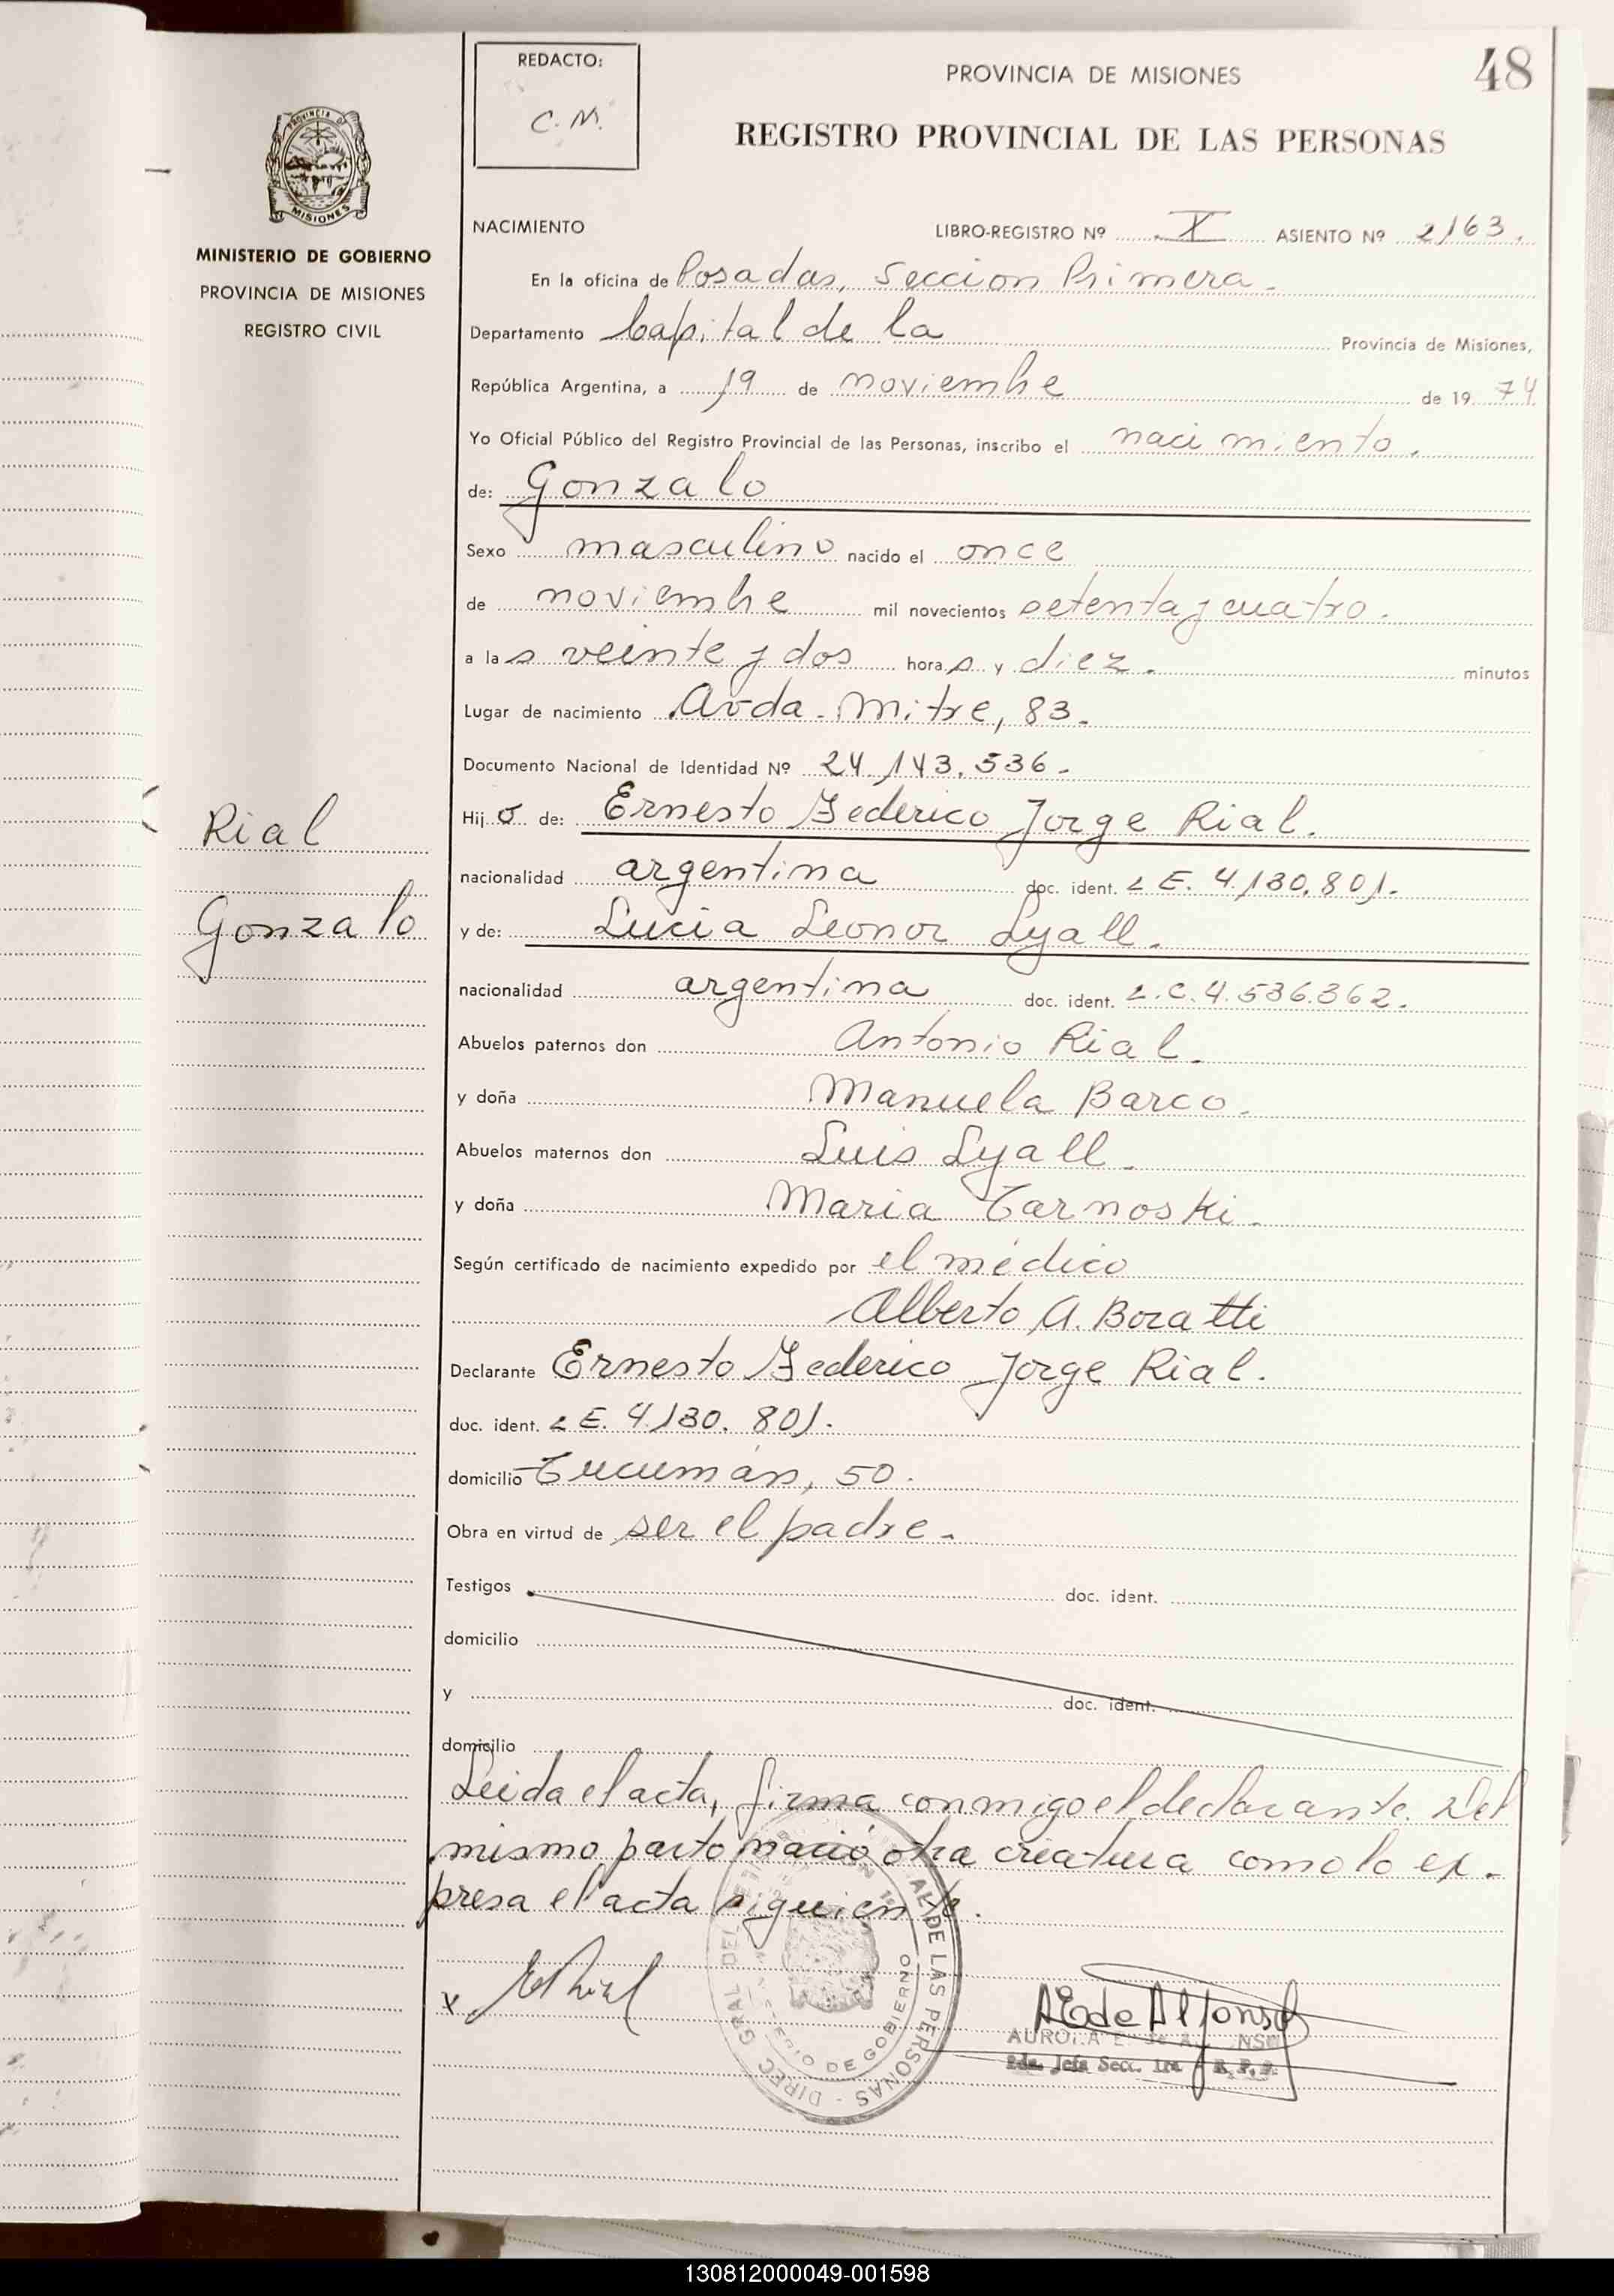 48
REDACTO:
C. M.
PROVINCIA DE MISIONES
REGISTRO PROVINCIAL DE LAS PERSONAS
PROVINCIA DE
MISIONES
MINISTERIO DE GOBIERNO
PROVINCIA DE MISIONES
REGISTRO CIVIL
NACIMIENTO LIBRO-REGISTRO Nº X ASIENTO Nº 2163.
En la oficina de Posadas, Seccion Primera.
Departamento Capital de la Provincia de Misiones,
República Argentina, a 19 de noviembre de 1974
Yo Oficial Público del Registro Provincial de las Personas, inscribo el nacimiento.
de: Gonzalo
Sexo masculino nacido el once
de noviembre mil novecientos setenta y cuatro.
a las veinte y dos horas y diez. minutos
Lugar de nacimiento Avda. Mitre, 83.
Documento Nacional de Identidad Nº 24.143.536.
Rial
Hijo de: Ernesto Federico Jorge Rial.
nacionalidad argentina doc. ident. L E. 4.130.801.
Gonzalo
y de: Lucia Leonor Lyall.
nacionalidad argentina doc. ident. L.C. 4.536.362.
Abuelos paternos don Antonio Rial.
y doña Manuela Barco.
Abuelos maternos don Luis Lyall.
y doña Maria Tarnoski.
Según certificado de nacimiento expedido por el médico
Alberto A. Boratti
Declarante Ernesto Federico Jorge Rial.
doc. ident. L E. 4.130.801.
domicilio Tucumán, 50.
Obra en virtud de ser el padre.
Testigos doc. ident.
domicilio
y doc. ident.
domicilio
Leida el acta, firma conmigo el declarante. Del
mismo parto nació otra criatura como lo ex-
presa el acta siguiente.
x. E Rial
AE de Alfonso
AURORA E. de ALFONSO
Jefa Secc. 1ra R. P. P.
DIREC. GRAL DEL AL DE LAS PERSONAS
DE GOBIERNO
130812000049-001598